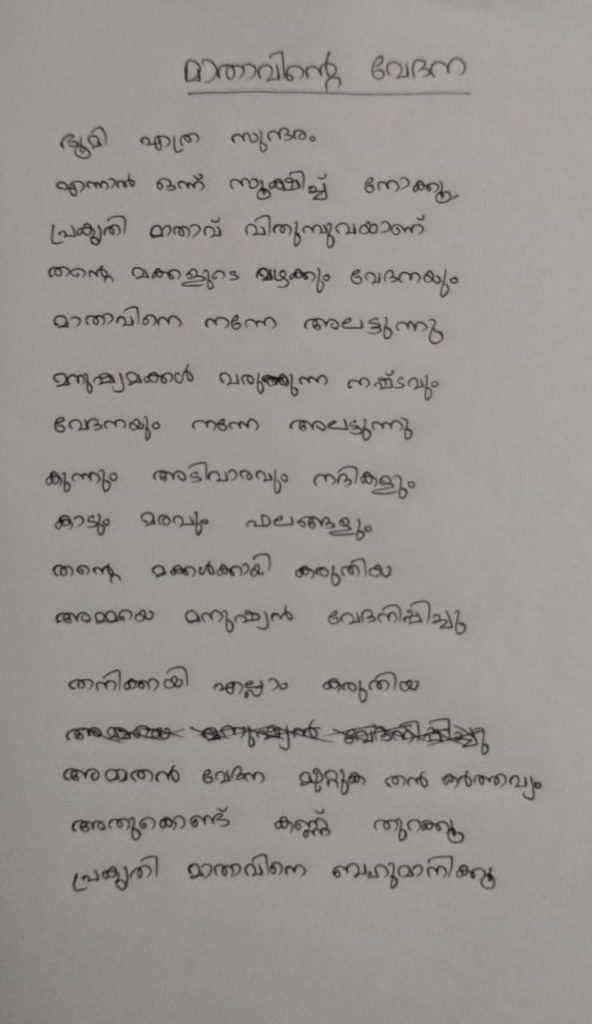 മാതാവിന്റെ വേദന
ഭൂമി എത്ര സുന്ദരം
എന്നാൽ ഒന്ന് സൂക്ഷിച്ച് നോക്കൂ
പ്രകൃതി മാതാവ് വിതുമ്പുവയാണ്
തന്റെ മക്കളുടെ വഴക്കും വേദനയും
മാതാവിനെ നന്നേ അലട്ടുന്നു
മനുഷ്യമക്കൾ വരുത്തുന്ന നഷ്ടവും
വേദനയും നന്നേ അലട്ടുന്നു
കുന്നും അടിവാരവും നദികളും
കാടും മരവും ഫലങ്ങളും
തന്റെ മക്കൾക്കായി കരുതിയ
അമ്മയെ മനുഷ്യൻ വേദനിപ്പിച്ചു
തനിക്കായി എല്ലാം കരുതിയ
അമ്മയെ മനുഷ്യൻ വേദനിപ്പിച്ചു
അമ്മതൻ വേദന മാറ്റുക തൻ കർത്തവ്യം
അതുകൊണ്ട് കണ്ണ് തുറക്കൂ
പ്രകൃതി മാതാവിനെ ബഹുമാനിക്കൂ